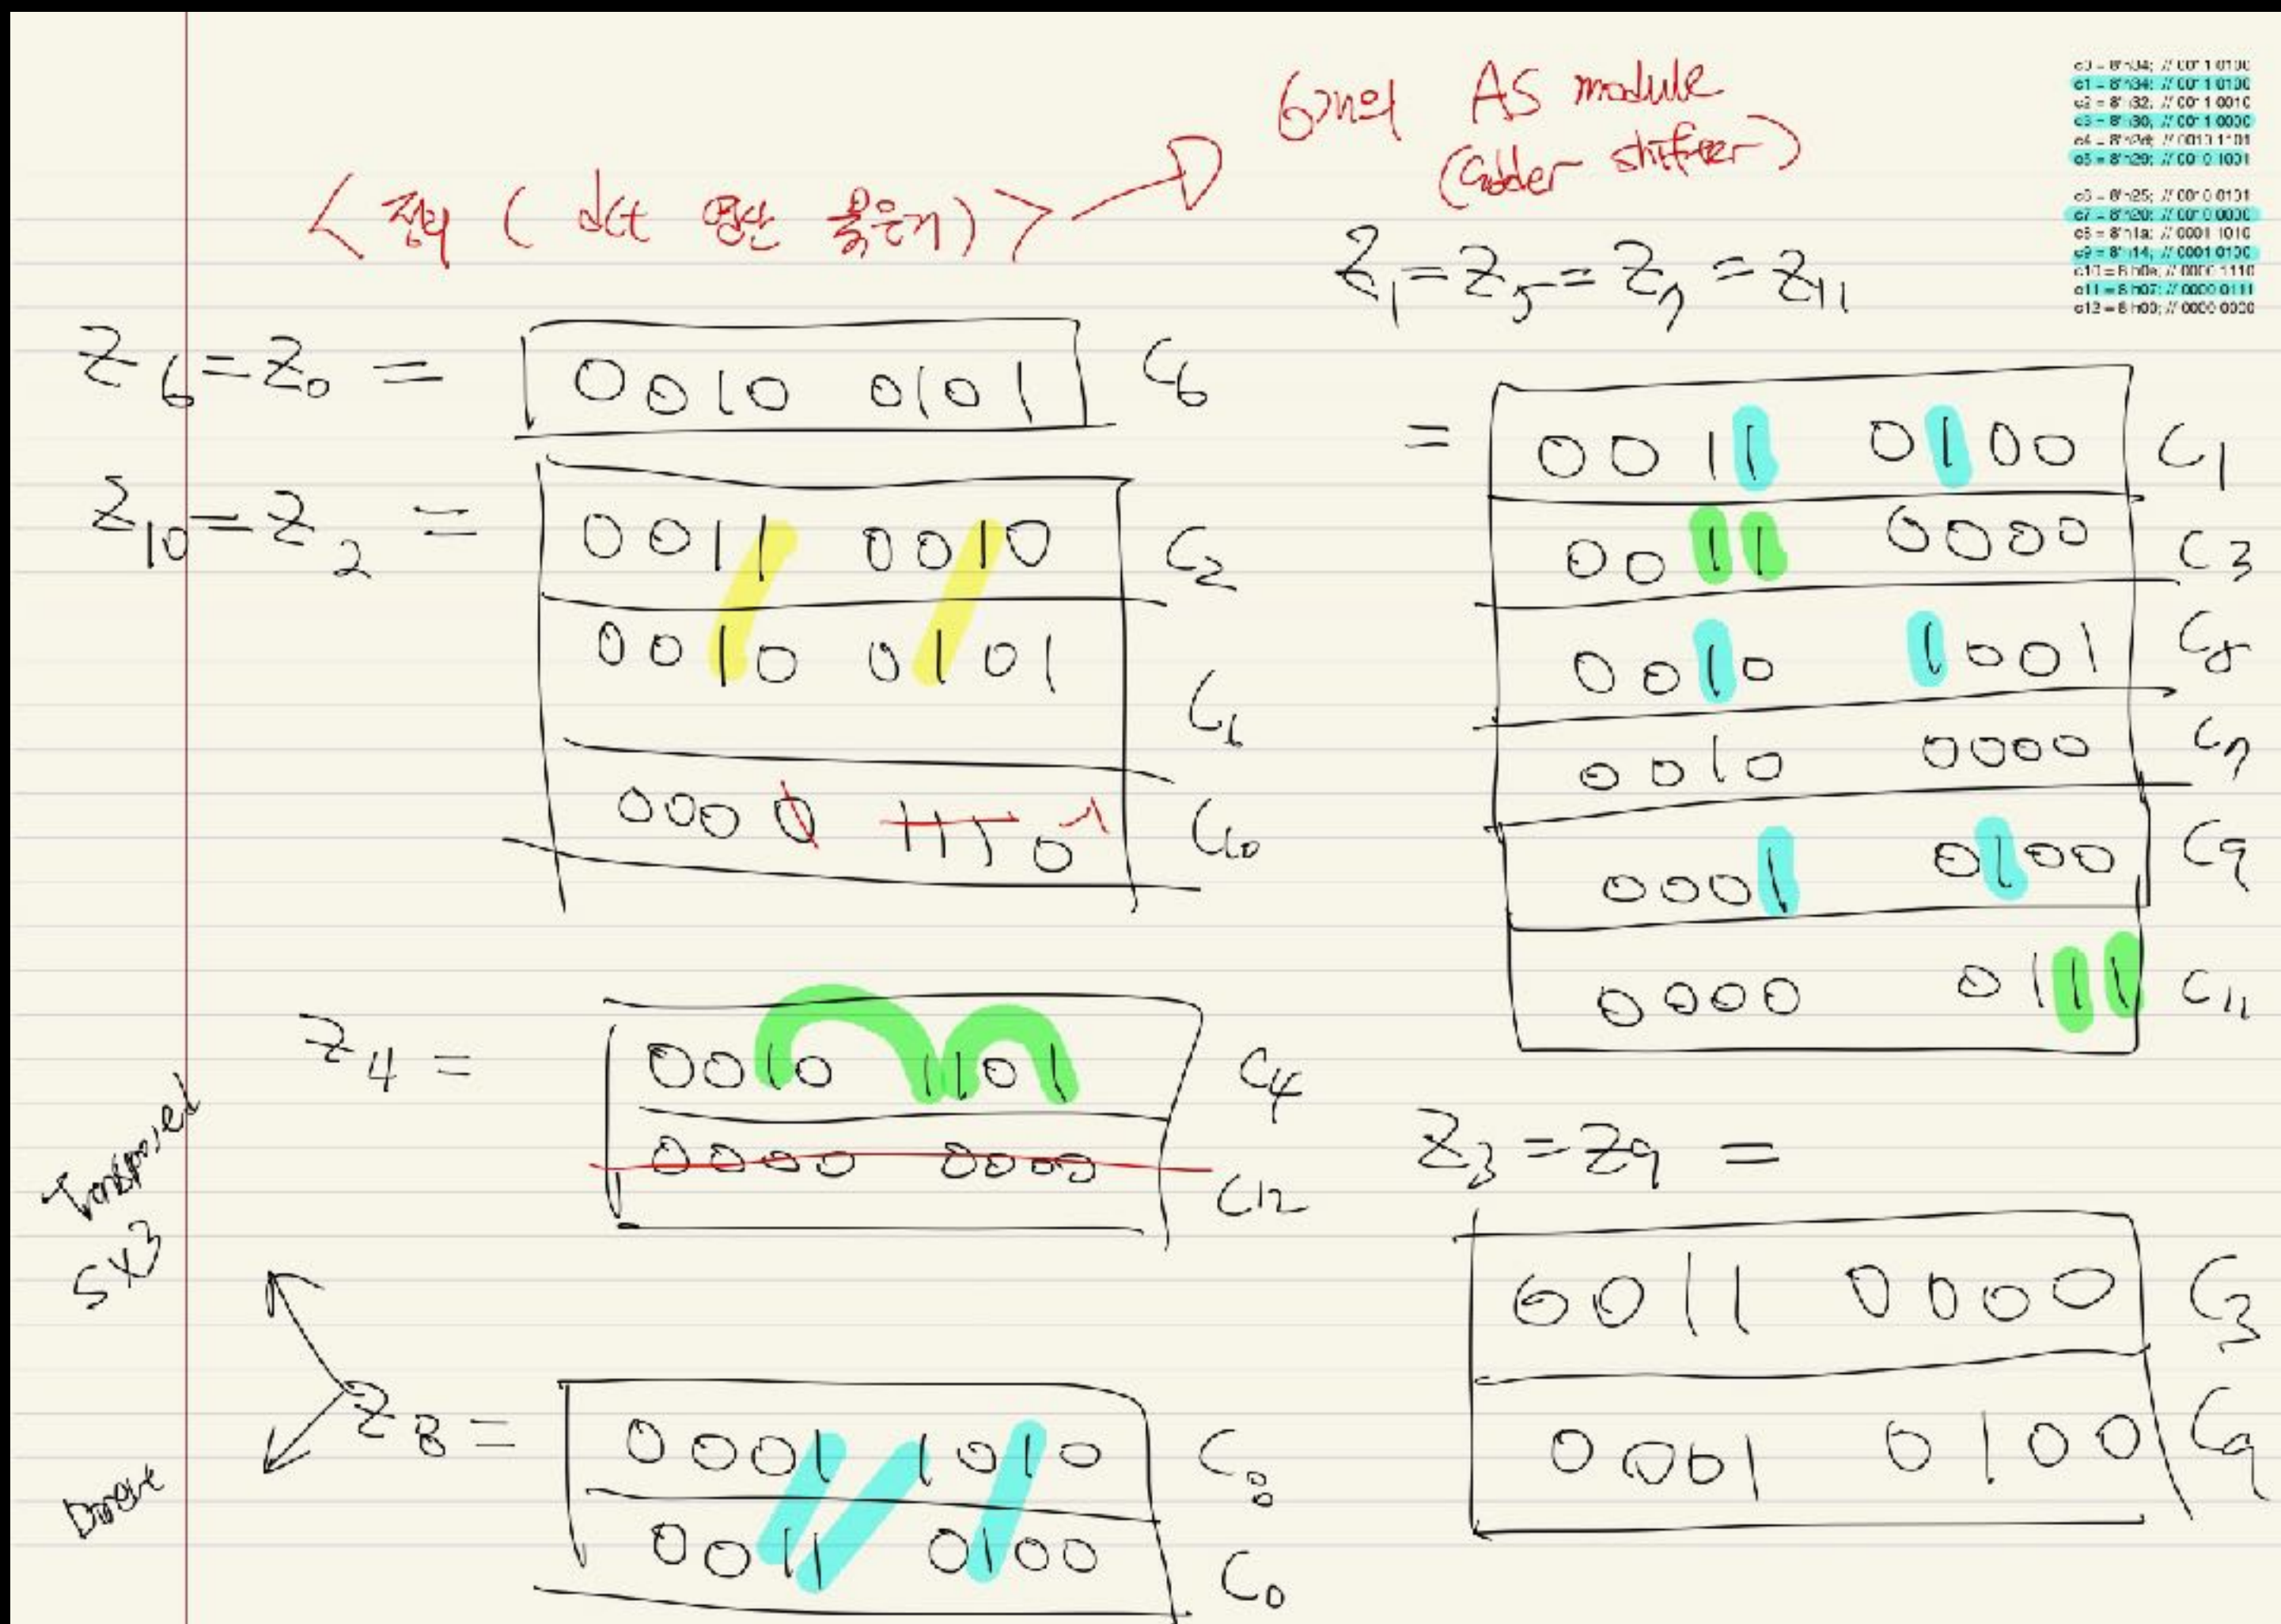 6개의 AS module
(adder shifter)
c0 = 8'h34; // 0011 0100
c1 = 8'h34; // 0011 0100
c2 = 8'h32; // 0011 0010
c3 = 8'h30; // 0011 0000
c4 = 8'h2d; // 0010 1101
c5 = 8'h29; // 0010 1001
c6 = 8'h25; // 0010 0101
c7 = 8'h20; // 0010 0000
c8 = 8'h1a; // 0001 1010
c9 = 8'h14; // 0001 0100
c10 = 8'h0e; // 0000 1110
c11 = 8'h07; // 0000 0111
c12 = 8'h00; // 0000 0000
< 정리 ( dct 연산 묶은거) >
Z6 = Z0 = 0010 0101 C6
Z10 = Z2 =
0011 0010 C2
0010 0101 C6
0000 1110 C10
Z4 =
0010 1101 C4
0000 0000 C12
Transposed
5x3
Direct
Z8 =
0001 1010 C8
0011 0100 C0
Z1 = Z5 = Z7 = Z11
=
0011 0100 C1
0011 0000 C3
0010 1001 C5
0010 0000 C7
0001 0100 C9
0000 0111 C11
Z3 = Z9 =
0011 0000 C3
0001 0100 C9